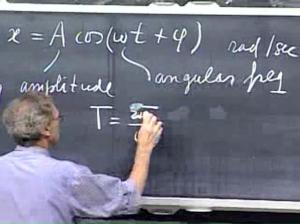 x = A cos(ωt + φ)
rad/sec
amplitude
angular freq
T = 2π